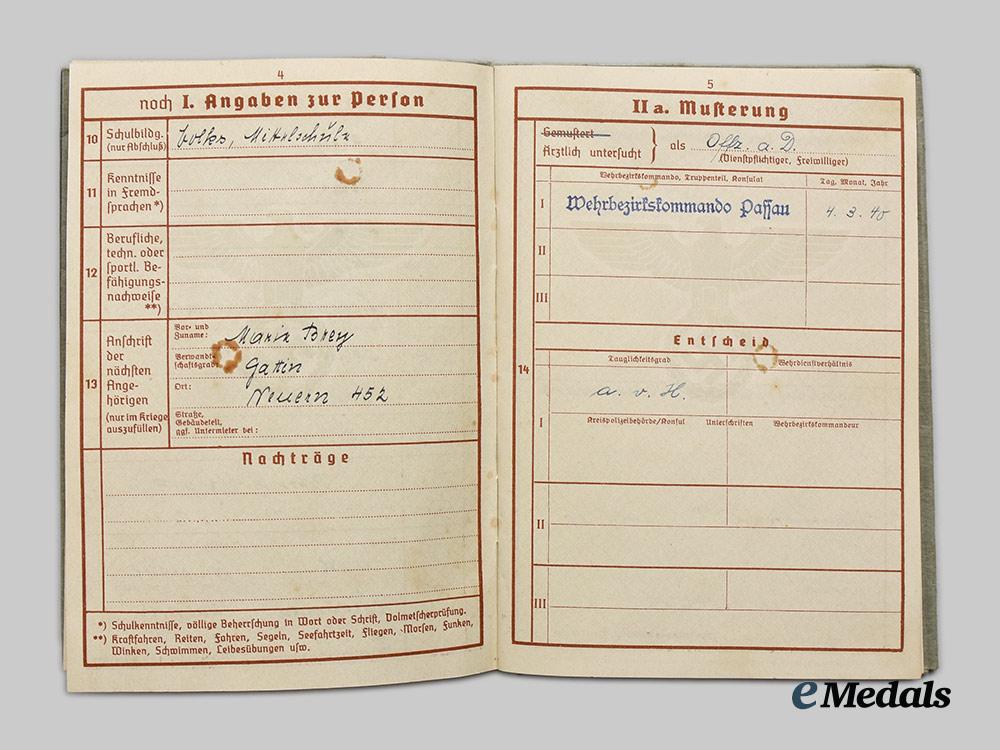 4
noch I. Angaben zur Person
10 Schulbildg. (nur Abschluß) Volks, Mittelschule
11 Kenntnisse in Fremdsprachen *)
12 Berufliche, techn. oder sportl. Befähigungsnachweise **)
13 Anschrift der nächsten Angehörigen (nur im Kriege auszufüllen)
Vor- und Zuname: Maria Brey
Verwandtschaftsgrad: Gattin
Ort: Neuern 452
Straße, Gebäudeteil, ggf. Untermieter bei:
Nachträge
*) Schulkenntnisse, völlige Beherrschung in Wort oder Schrift, Dolmetscherprüfung.
**) Kraftfahren, Reiten, Fahren, Segeln, Seefahrtzeit, Fliegen, Morsen, Funken,
Winken, Schwimmen, Leibesübungen usw.
5
II a. Musterung
Gemustert
Ärztlich untersucht } als Offz. a. D.
(Dienstpflichtiger, Freiwilliger)
Wehrbezirkskommando, Truppenteil, Konsulat Tag, Monat, Jahr
I Wehrbezirkskommando Passau 4. 3. 40
II
III
14
Entscheid
Tauglichkeitsgrad Wehrdienstverhältnis
a. v. H.
I Kreispolizeibehörde/Konsul Unterschriften Wehrbezirkskommandeur
II
III
eMedals